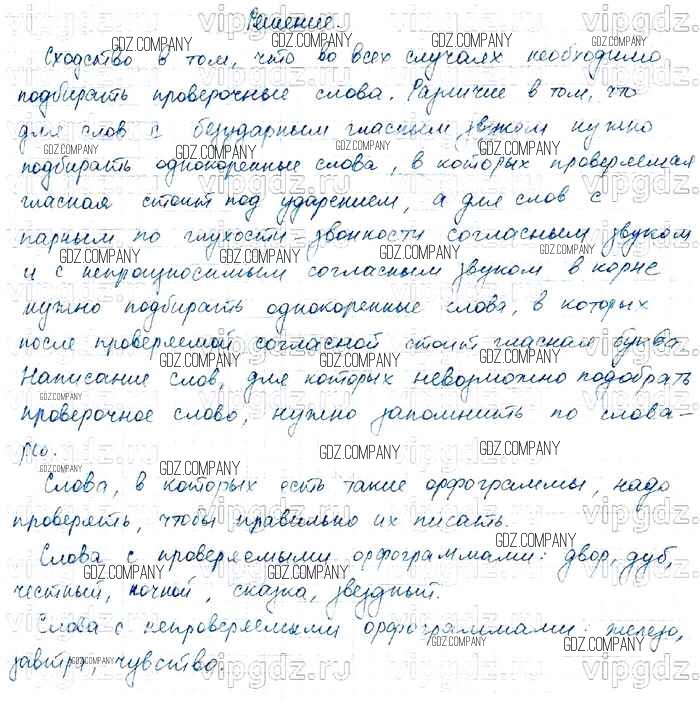 Решение.
Сходство в том, что во всех случаях необходимо
подбирать проверочные слова. Различие в том, что
для слов с безударным гласным звуком нужно
подбирать однокоренные слова, в которых проверяемая
гласная стоит под ударением, а для слов с
парным по глухости звонкости согласным звуком
и с непроизносимым согласным звуком в корне
нужно подбирать однокоренные слова, в которых
после проверяемой согласной стоит гласная буква.
Написание слов, для которых невозможно подобрать
проверочное слово, нужно запомнить по слова-
рю.
Слова, в которых есть такие орфограммы, надо
проверять, чтобы правильно их писать.
Слова с проверяемыми орфограммами: двор, дуб,
честный, ночной, сказка, звездный.
Слова с непроверяемыми орфограммами: железо,
завтра, чувство.